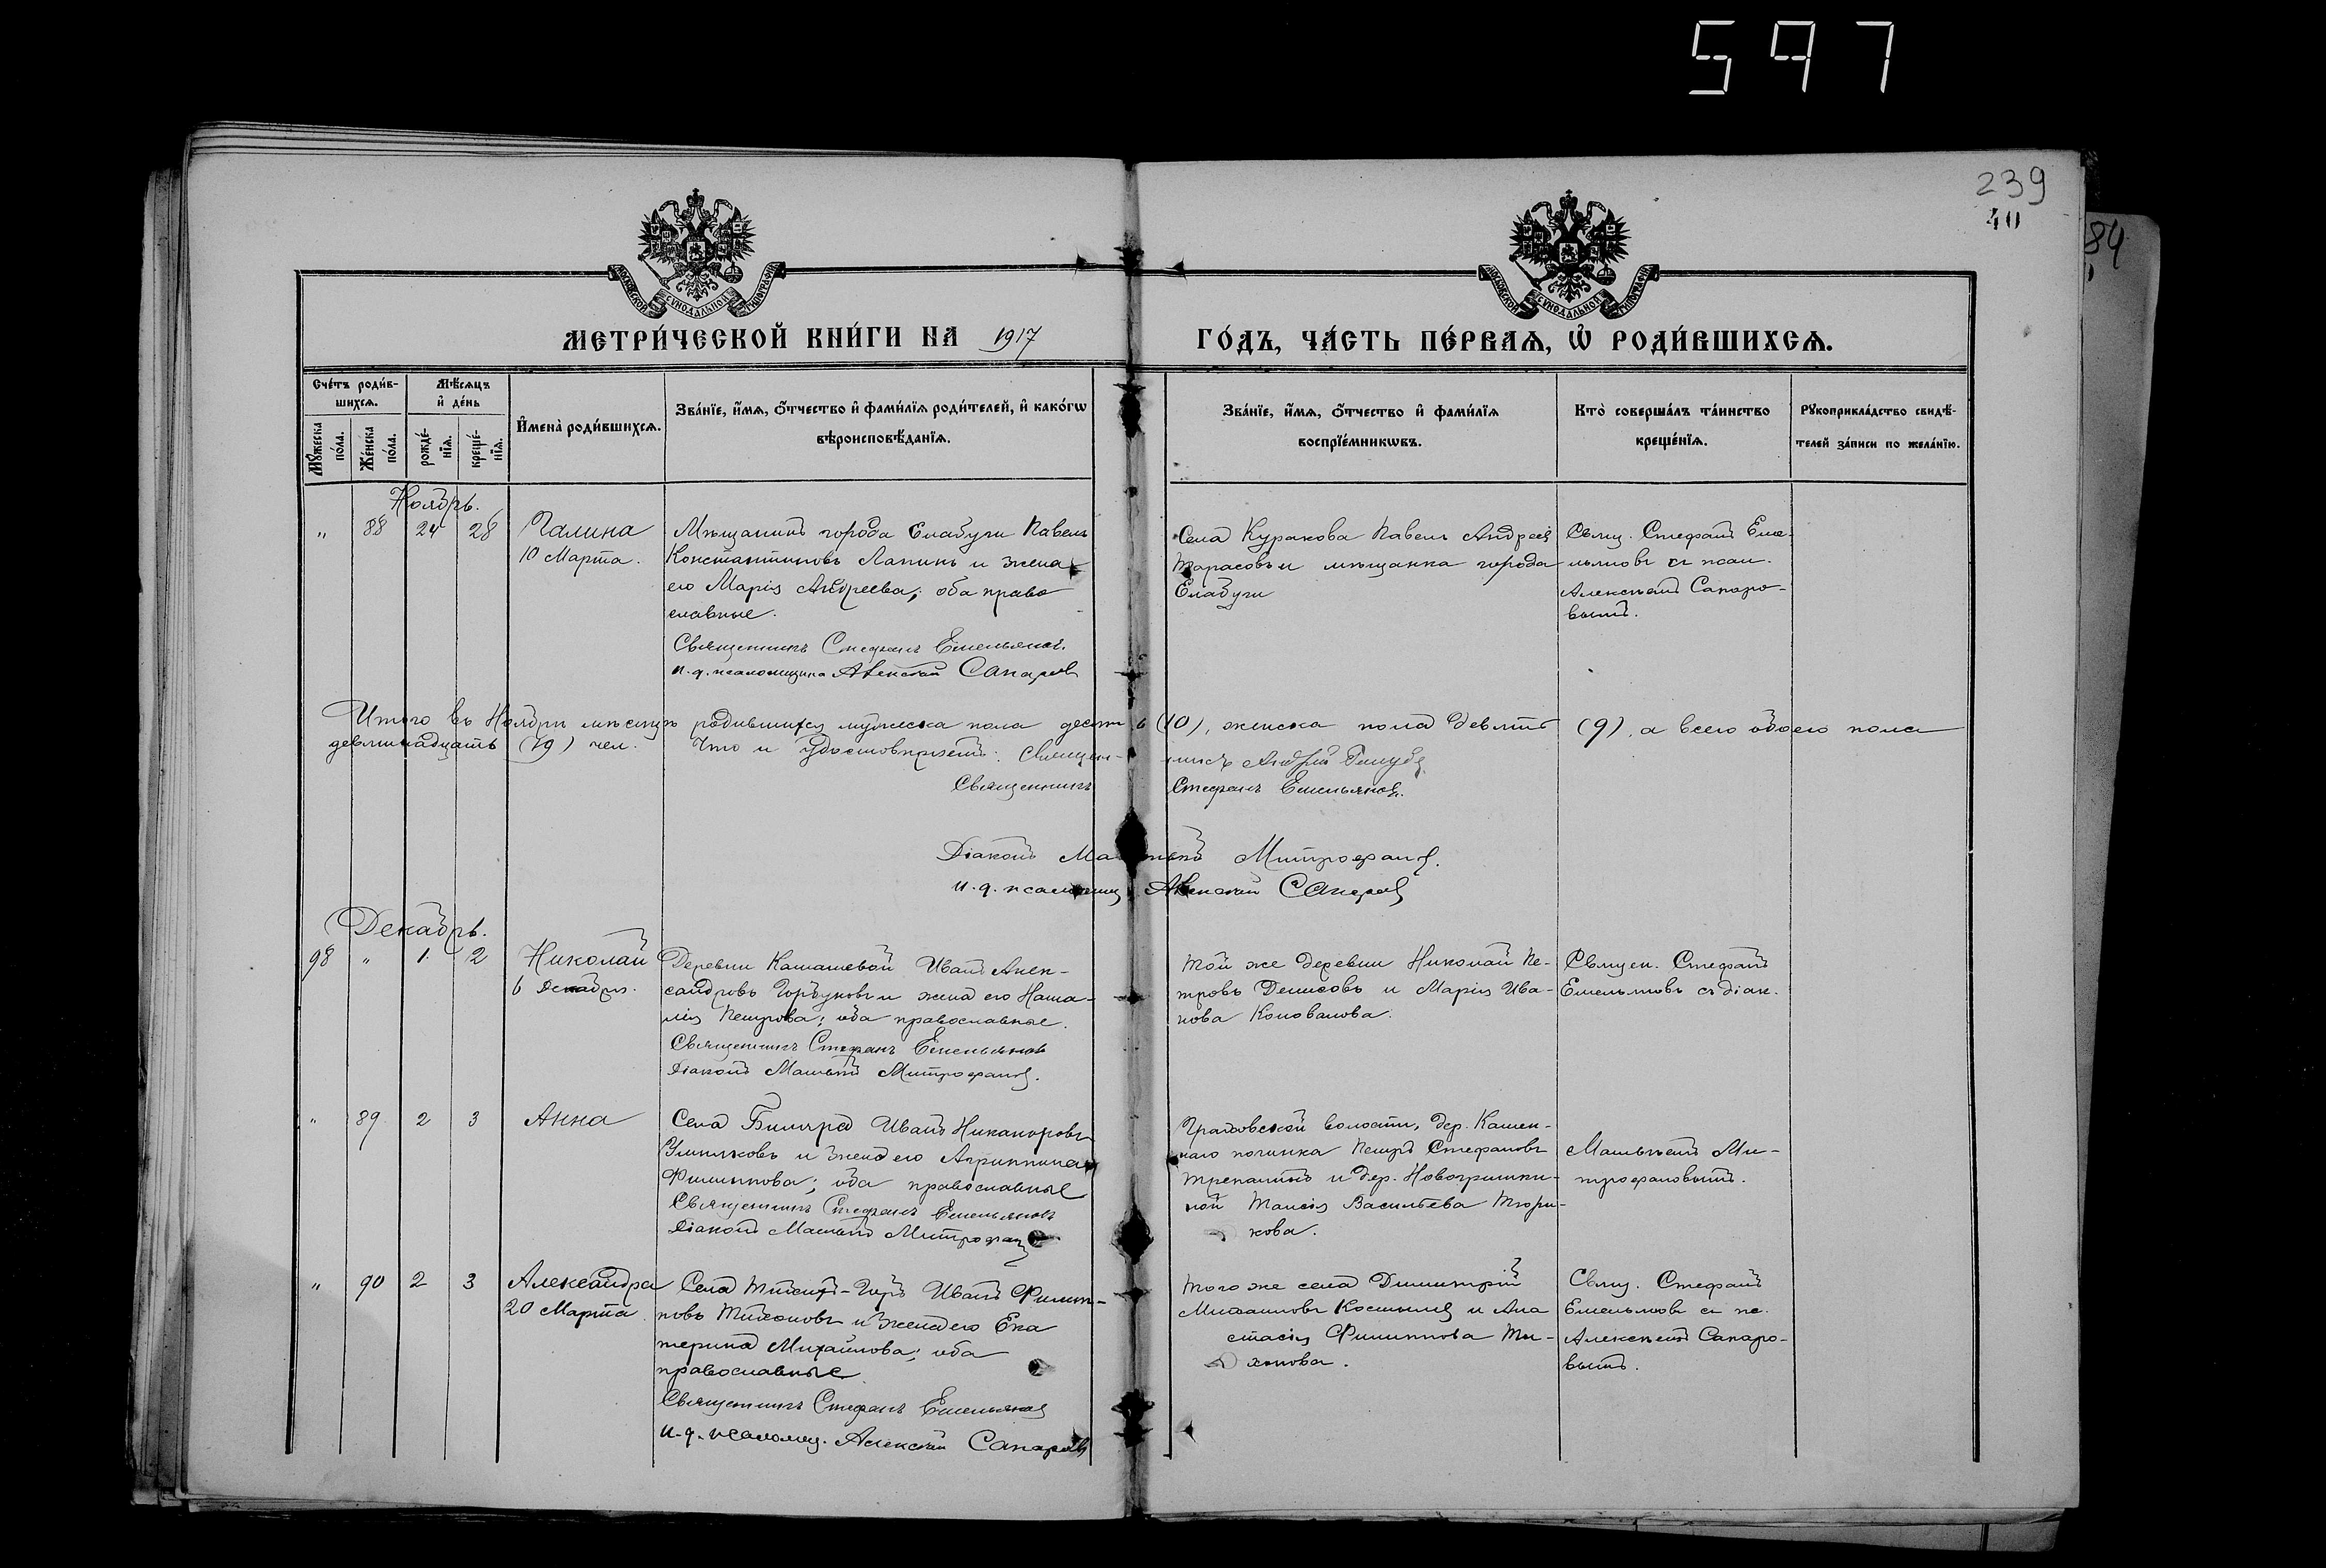 597
239
40
84
МОСКОВСКОЙ СѴНОДАЛЬНОЙ ТИПОГРАФІИ
МОСКОВСКОЙ СѴНОДАЛЬНОЙ ТИПОГРАФІИ
МЕТРИ́ЧЕСКОЙ КНИ́ГИ НА 1917 ГО́ДЪ, ЧА́СТЬ ПЕ́РВАѦ, Ѡ҆ РОДИ́ВШИХСѦ.
Сче́тъ роди́в-
шихсѧ.
Мѣ́сѧцъ
и҆ де́нь
Мꙋ́жеска
по́ла.
Же́нска
по́ла.
рожде́-
нїѧ.
креще́-
нїѧ.
И҆мена̀ роди́вшихсѧ.
Зва́нїе, и҆́мѧ, ѻ҆́тчество и҆ фами́лїѧ роди́телей, и҆ како́гѡ
вѣроисповѣ́данїѧ.
Зва́нїе, и҆́мѧ, ѻ҆́тчество и҆ фами́лїѧ
воспрїе́мникѡвъ.
Кто̀ соверша́лъ та́инство
креще́нїѧ.
Рꙋкоприкла́дство свидѣ́-
телей за́писи по жела́нїю.
Ноябрь.
" 88 24 28 Галина
10 Марта.
Мѣщанинъ города Елабуги Павелъ
Константиновъ Лапинъ и жена
его Марія Андреева; оба право
славные.
Священникъ Стефанъ Емельяновъ.
и.д. псаломщика Алексѣй Сапаровъ
Села Куракова Павелъ Андреев
Тарасовъ и мѣщанка города
Елабуги
Свящ. Стефанъ Еме-
льяновъ съ псал.
Алексѣемъ Сапаро-
вымъ.
Итого въ Ноябрѣ мѣсяцѣ родившихся мужеска пола десять (10), женска пола девять (9), а всего обоего пола
девятнадцать (19) чел. Что и удостовѣряемъ: Священ-никъ Андрей
Священникъ Стефанъ Емельяновъ.
Діаконъ Матѳей Митрофановъ.
и.д. псаломщ. Алексѣй Сапаровъ
Декабрь.
98 " 1 2 Николай
6 Декабря.
Деревни Камашевой Иванъ Алек-
сандровъ Горбуновъ и жена его Ната-
лія Петрова; оба православные.
Священникъ Стефанъ Емельяновъ
Діаконъ Матѳей Митрофановъ.
Той же деревни Николай Пе-
тровъ Денисовъ и Марія Ива-
нова Коновалова.
Священ. Стефанъ
Емельяновъ съ діак.
" 89 2 3 Анна
Села Билярa Иванъ Никаноровъ
и жена его Агриппина
Филиппова; оба православные
Священникъ Стефанъ Емельяновъ
Діаконъ Матѳей Митрофанов
Граховской волости, дер. Камен-
наго починка Петръ Стефановъ
Трепалинъ и дер. Новогришки-
ной Таисія Васильева Тюри-
кова.
Матѳеемъ Ми-
трофановымъ.
" 90 2 3 Александра
20 Марта
Села Тихихъ-Горъ Иванъ Филип-
повъ Тихоновъ и жена его Ека
терина Михайлова; оба
православные.
Священникъ Стефанъ Емельянов
и.д. псаломщ. Алексѣй Сапаровъ
Того же села Димитрій
Михаиловъ Костылев и Ана
стасія Филиппова Ти-
хонова.
Свящ. Стефанъ
Емельяновъ съ пс.
Алексѣемъ Сапаро-
вымъ.